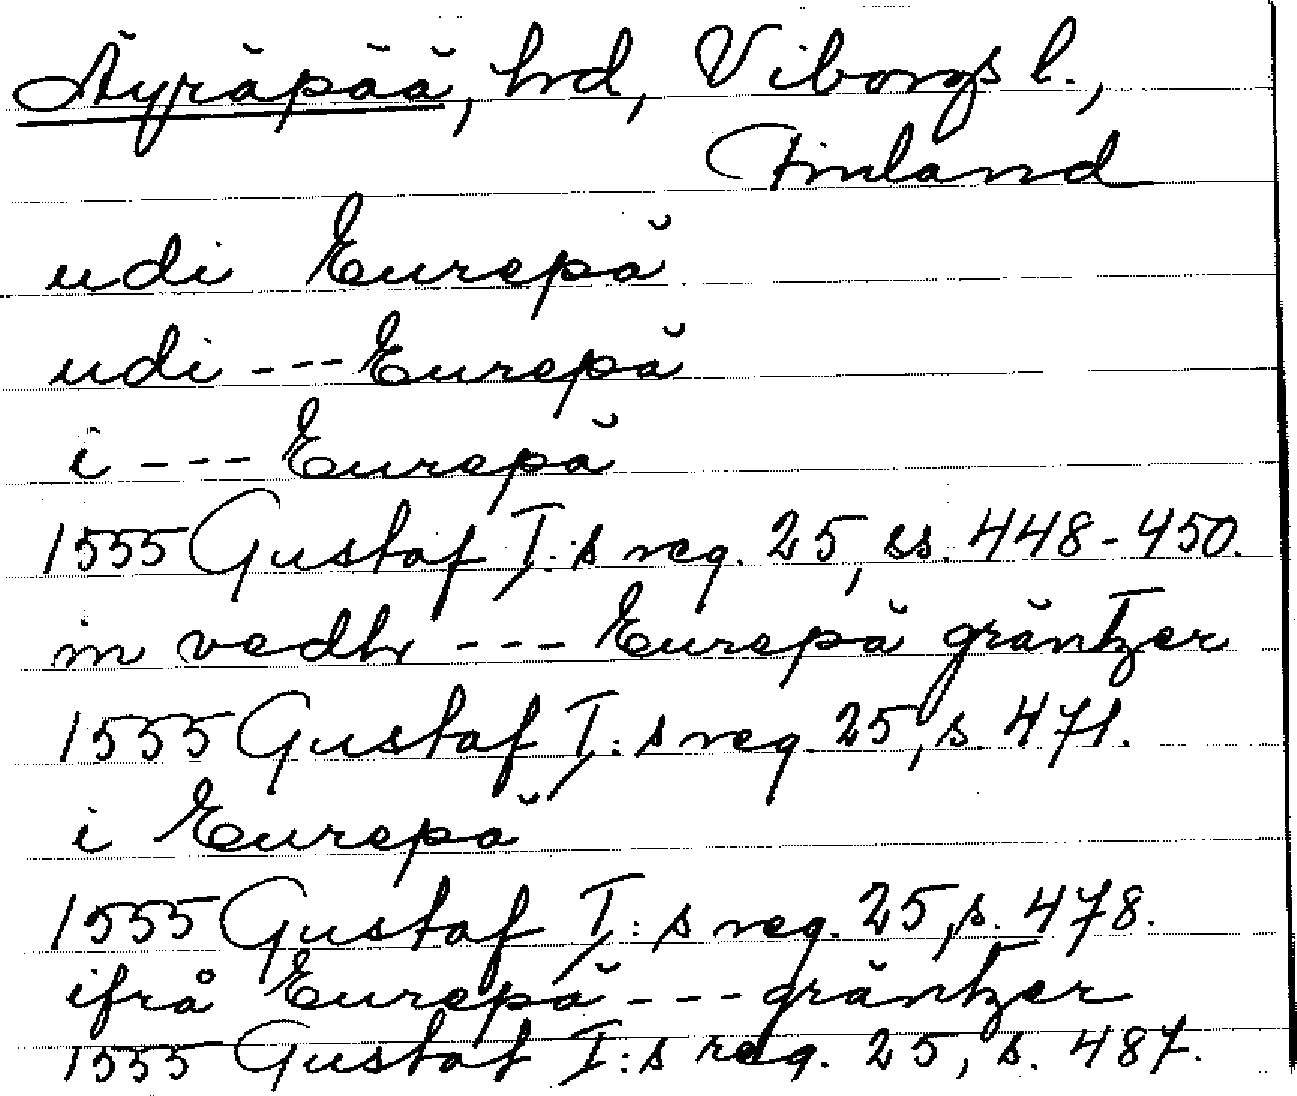 Äyräpää, hd, Viborgs l.,
Finland
udi Eurepä
udi --- Eurepä
i --- Eurepä
1555 Gustaf I:s reg. 25, ss. 448-450.
in vedh --- Eurepä gräntzer
1555 Gustaf I:s reg. 25, s. 471.
i Eurepä
1555 Gustaf I:s reg. 25, s. 478.
ifrå Eurepä --- gräntzer
1555 Gustaf I:s reg. 25, s. 487.